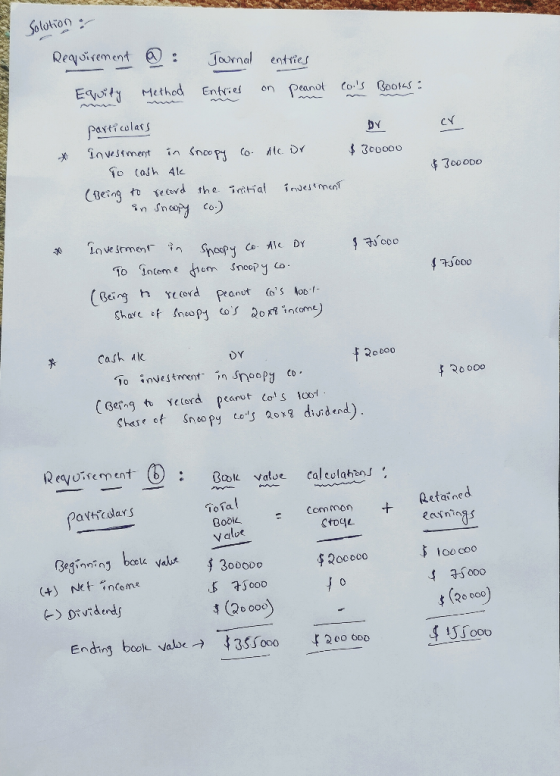 Solution :-
Requirement (a) : Journal entries
Equity Method Entries on peanut Co.'s Books :
particulars Dr Cr
* Investment in Snoopy Co. A/c Dr $ 300000
To cash A/c $ 300000
(Being to record the initial investment
in Snoopy Co.)
* Investment in Snoopy Co A/c Dr $ 75000
To Income from Snoopy Co. $ 75000
(Being to record peanut Co's 100%
Share of Snoopy Co's 20x8 income)
* Cash A/c Dr $ 20000
To investment in Snoopy Co. $ 20000
(Being to record peanut Co's 100%
Share of Snoopy Co's 20x8 dividend).
Requirement (b) : Book value calculations :
particulars Total Book value = Common Stock + Retained earnings
Beginning book value $ 300000 $ 200000 $ 100000
(+) Net income $ 75000 $ 0 $ 75000
(-) Dividends $ (20000) - $ (20000)
Ending book value → $ 355000 $ 200 000 $ 155000